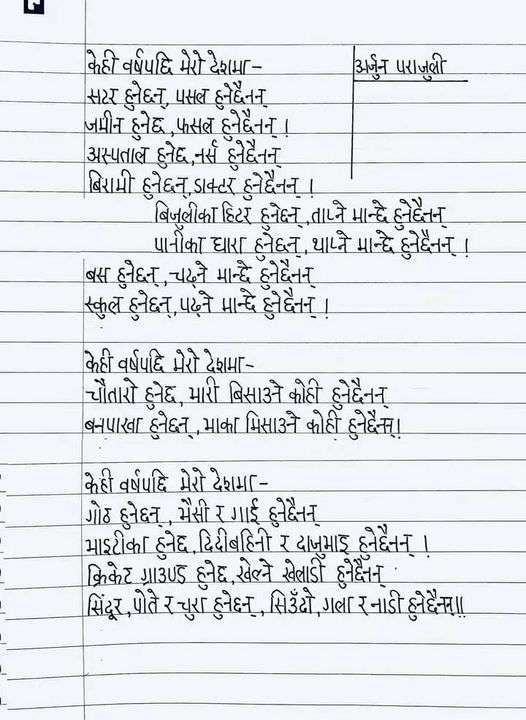 केही वर्षपछि मेरो देशमा -
अर्जुन पराजुली
सटर हुनेछन्, पसल हुनेछैनन्
जमीन हुनेछ, फसल हुनेछैनन् !
अस्पताल हुनेछ, नर्स हुनेछैनन्
बिरामी हुनेछन्, डाक्टर हुनेछैनन् !
बिजुलीका हिटर हुनेछन्, ताप्ने मान्छे हुनेछैनन्
पानीका धारा हुनेछन्, थाप्ने मान्छे हुनेछैनन् !
बस हुनेछन्, चढ्ने मान्छे हुनेछैनन्
स्कुल हुनेछन्, पढ्ने मान्छे हुनेछैनन् !
केही वर्षपछि मेरो देशमा -
चौतारो हुनेछ, भारी बिसाउने कोही हुनेछैनन्
बनपाखा हुनेछन्, भाका मिसाउने कोही हुनेछैनन् !
केही वर्षपछि मेरो देशमा -
गोठ हुनेछन्, भैसी र गाई हुनेछैनन्
भाइटीका हुनेछ, दिदीबहिनी र दाजुभाइ हुनेछैनन् !
क्रिकेट ग्राउण्ड हुनेछ, खेल्ने खेलाडी हुनेछैनन्
सिंदूर, पोते र चुरा हुनेछन्, सिउँदो, गला र नाडी हुनेछैनन् ॥